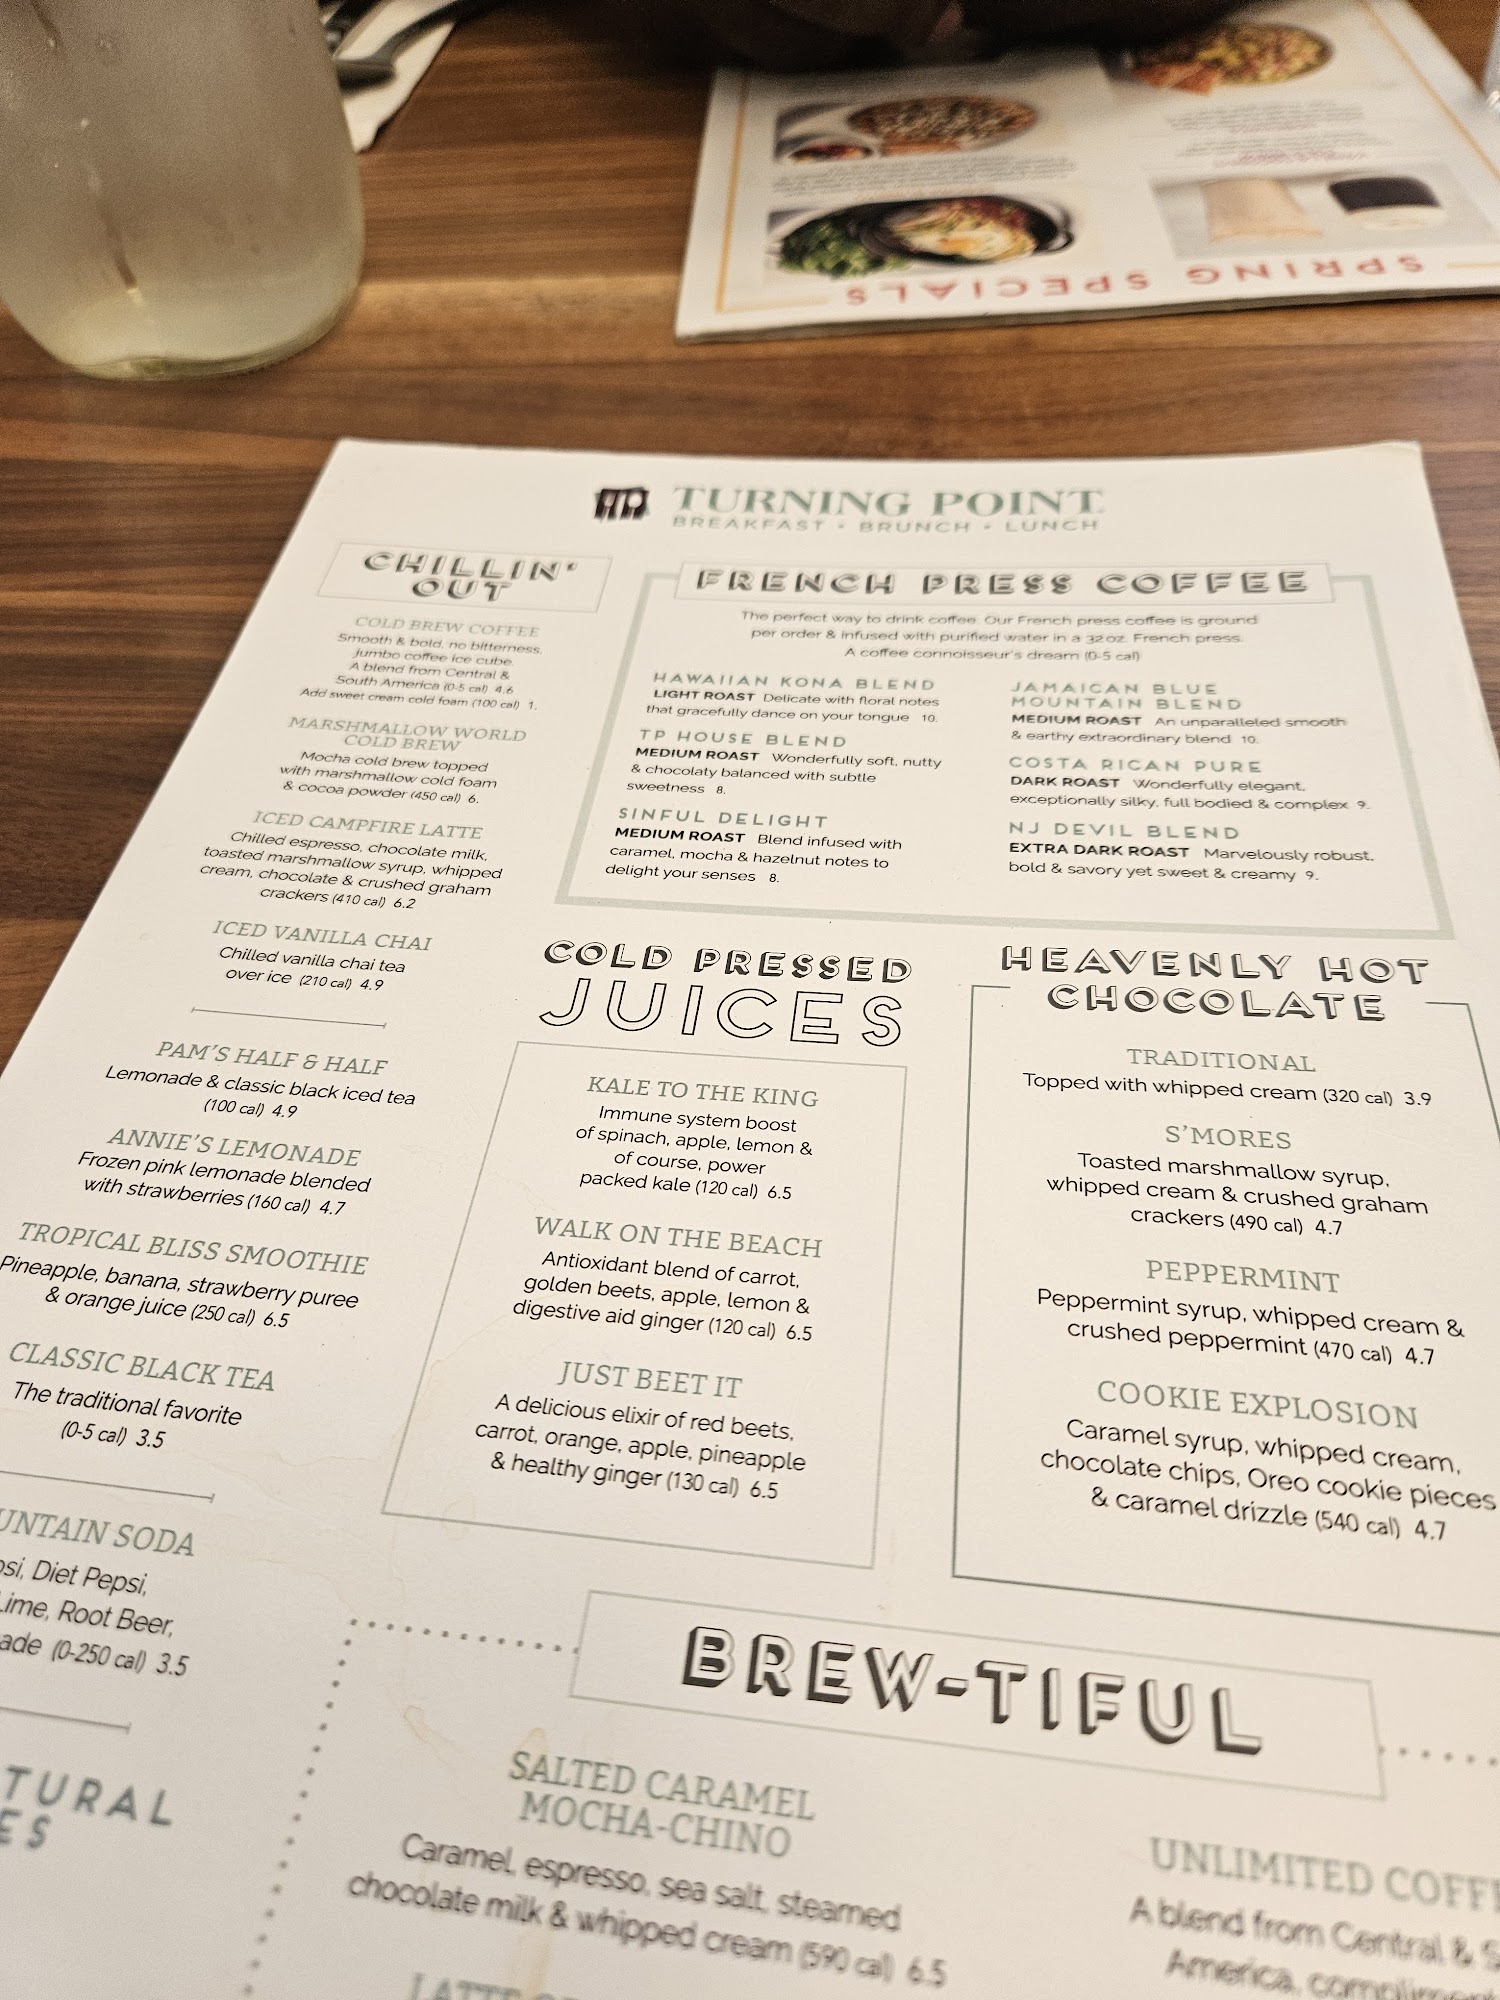 SPRING SPECIALS
TURNING POINT
BREAKFAST • BRUNCH • LUNCH
CHILLIN'
OUT
COLD BREW COFFEE
Smooth & bold, no bitterness,
jumbo coffee ice cube.
A blend from Central &
South America (0-5 cal) 4.6
Add sweet cream cold foam (100 cal) 1.
MARSHMALLOW WORLD
COLD BREW
Mocha cold brew topped
with marshmallow cold foam
& cocoa powder (450 cal) 6.
ICED CAMPFIRE LATTE
Chilled espresso, chocolate milk,
toasted marshmallow syrup, whipped
cream, chocolate & crushed graham
crackers (410 cal) 6.2
ICED VANILLA CHAI
Chilled vanilla chai tea
over ice (210 cal) 4.9
PAM'S HALF & HALF
Lemonade & classic black iced tea
(100 cal) 4.9
ANNIE'S LEMONADE
Frozen pink lemonade blended
with strawberries (160 cal) 4.7
TROPICAL BLISS SMOOTHIE
Pineapple, banana, strawberry puree
& orange juice (250 cal) 6.5
CLASSIC BLACK TEA
The traditional favorite
(0-5 cal) 3.5
UNTAIN SODA
psi, Diet Pepsi,
Lime, Root Beer,
ade (0-250 cal) 3.5
TURAL
ES
FRENCH PRESS COFFEE
The perfect way to drink coffee. Our French press coffee is ground
per order & infused with purified water in a 32 oz. French press.
A coffee connoisseur's dream (0-5 cal)
HAWAIIAN KONA BLEND
LIGHT ROAST Delicate with floral notes
that gracefully dance on your tongue 10.
TP HOUSE BLEND
MEDIUM ROAST Wonderfully soft, nutty
& chocolaty balanced with subtle
sweetness 8.
SINFUL DELIGHT
MEDIUM ROAST Blend infused with
caramel, mocha & hazelnut notes to
delight your senses 8.
JAMAICAN BLUE
MOUNTAIN BLEND
MEDIUM ROAST An unparalleled smooth
& earthy extraordinary blend 10.
COSTA RICAN PURE
DARK ROAST Wonderfully elegant,
exceptionally silky, full bodied & complex 9.
NJ DEVIL BLEND
EXTRA DARK ROAST Marvelously robust,
bold & savory yet sweet & creamy 9.
COLD PRESSED
JUICES
KALE TO THE KING
Immune system boost
of spinach, apple, lemon &
of course, power
packed kale (120 cal) 6.5
WALK ON THE BEACH
Antioxidant blend of carrot,
golden beets, apple, lemon &
digestive aid ginger (120 cal) 6.5
JUST BEET IT
A delicious elixir of red beets,
carrot, orange, apple, pineapple
& healthy ginger (130 cal) 6.5
HEAVENLY HOT
CHOCOLATE
TRADITIONAL
Topped with whipped cream (320 cal) 3.9
S'MORES
Toasted marshmallow syrup,
whipped cream & crushed graham
crackers (490 cal) 4.7
PEPPERMINT
Peppermint syrup, whipped cream &
crushed peppermint (470 cal) 4.7
COOKIE EXPLOSION
Caramel syrup, whipped cream,
chocolate chips, Oreo cookie pieces
& caramel drizzle (540 cal) 4.7
BREW-TIFUL
SALTED CARAMEL
MOCHA-CHINO
Caramel, espresso, sea salt, steamed
chocolate milk & whipped cream (590 cal) 6.5
LATTE
UNLIMITED COFF
A blend from Central & S
America, compliment